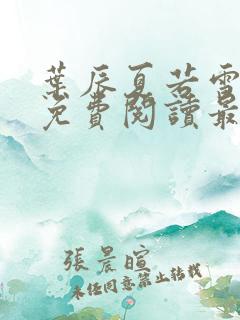 葉辰夏若雪
免費閱讀最
張晨暄
未经同意禁止转载